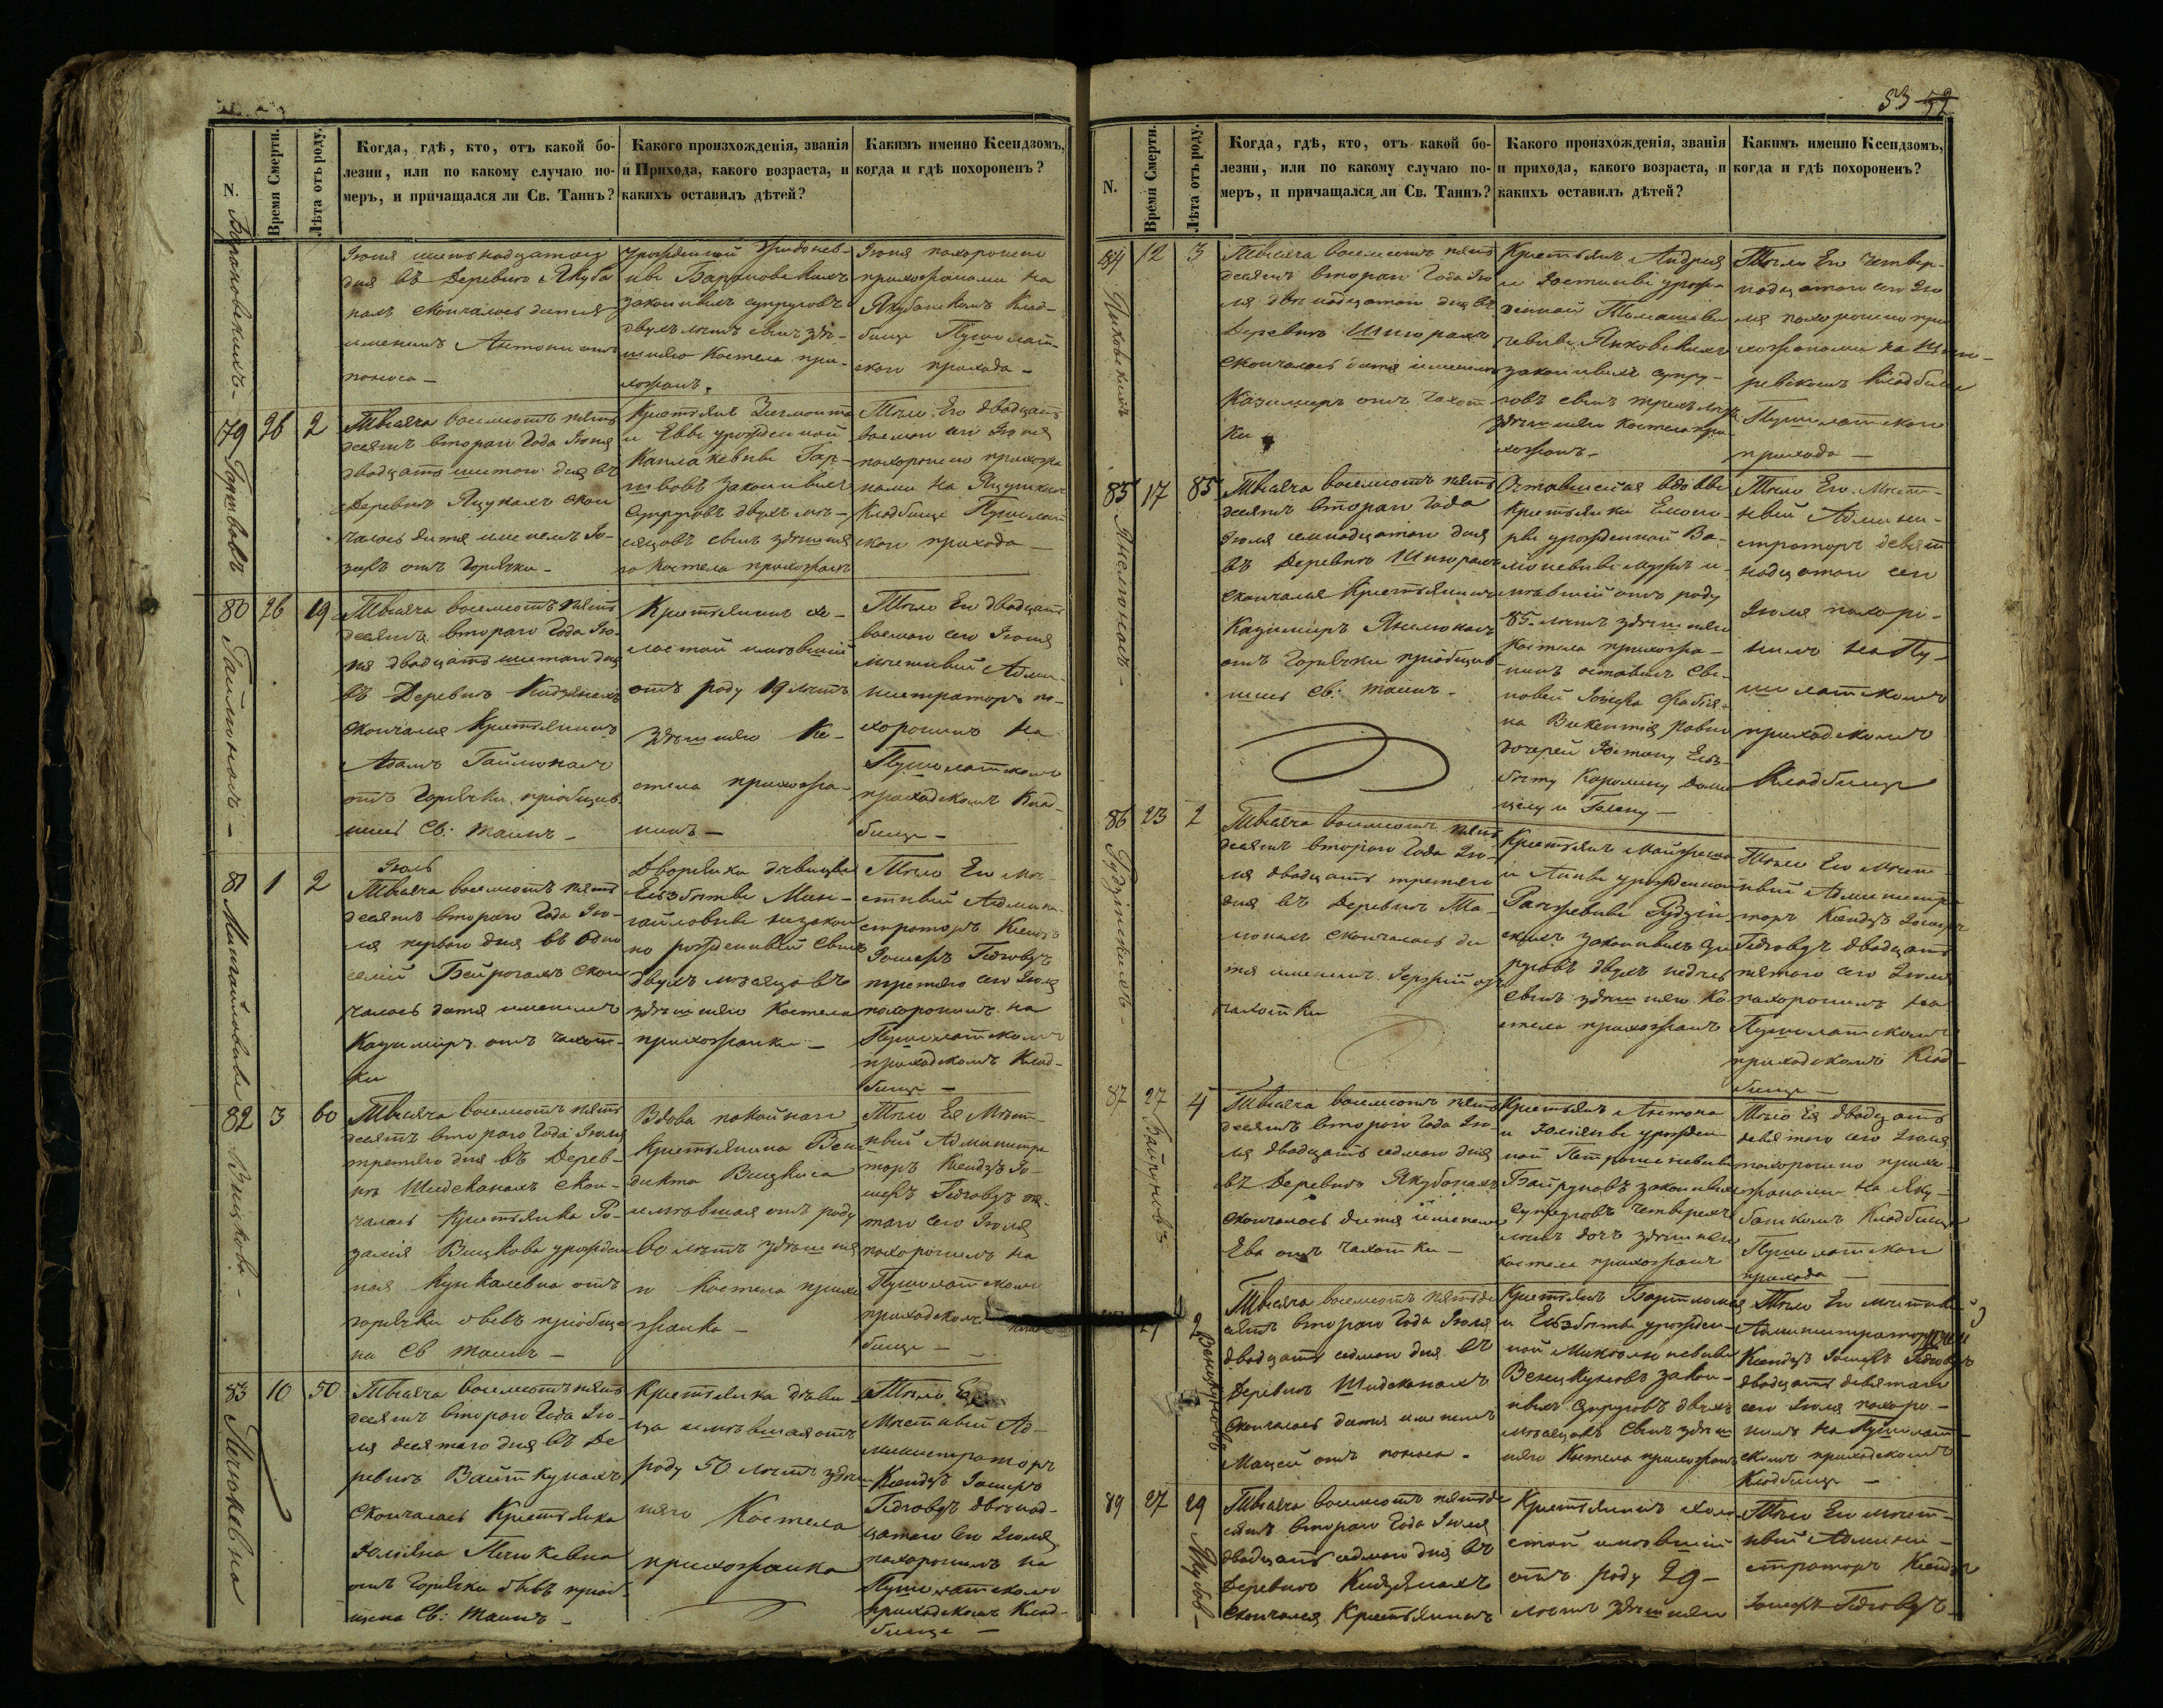 53 52
N.
Время Смерти.
Лѣта отъ роду.
Когда, гдѣ, кто, отъ какой бо-
лезни, или по какому случаю по-
меръ, и причащался ли Св. Таинъ?
Какого произхожденія, званія
и Прихода, какого возраста, и
какихъ оставилъ дѣтей?
Какимъ именно Ксендзомъ,
когда и гдѣ похороненъ?
Барановскихъ
Іюня шестьнадцатаго
дня въ Деревнѣ Якуба
нахъ скончалось дитя
именемъ Антони отъ
поноса
урожденной
ны Барановскихъ
законныхъ супруговъ
двухъ лѣтъ сынъ здѣ-
шняго Костела при-
хожанъ.
Іюня похоронено
прихожанами на
Якубанскомъ Клад-
бище Пушолат-
скаго прихода
79
26
2
Тысяча восемсотъ пять
десятъ втораго Года Іюня
двадцать шестаго дня въ
Деревнѣ Яцунахъ скон
чалось дитя именемъ Іо-
зефъ отъ Горячки
Крестьянъ Зигмонта
и Еввы урожденной
законныхъ
Супруговъ двухъ мѣ-
сяцовъ сынъ здѣшня
го Костела прихожанъ
Тѣло Его двадцать
восмаго сего Іюня
похоронено прихожа
нами на
Кладбище Пушолат
скаго прихода
80
26
19
Гайлюнасъ
Тысяча восемсотъ пять
десятъ втораго Года Ію-
ня двадцать шестаго дня
въ Деревнѣ Кидзянахъ
скончался Крестьянинъ
Адамъ Гайлюнасъ
отъ Горячки пріобщив-
шись Св: Таинъ
Крестьянинъ хо-
лостой имѣвшій
отъ роду 19 лѣтъ
здѣшняго Ко-
стела прихожа-
нинъ
Тѣло Его двадцать
восмаго сего Іюня
мѣстный Адми-
нистраторъ по-
хоронилъ на
Пушолатскомъ
приходскомъ Клад-
бище
81
1
2
Іюль
Тысяча восемсотъ пять
десятъ втораго Года Ію-
ля перваго дня въ Одно
селіи Бейрогахъ скон
чалось дитя именемъ
Казимиръ отъ чахот-
ки
Дворянки дѣвицы
Ельзбѣты Мин-
гайловны незакон
но рожденный сынъ
двухъ мѣсяцовъ
здѣшняго Костела
прихожанки
Тѣло Его Мѣ-
стный Админи-
страторъ Ксендзъ
Іосифъ Гедговдъ
третяго сего Іюля
похоронилъ на
Пушолатскомъ
приходскомъ Клад-
бище
82
3
60
Тысяча восемсотъ пять
десятъ втораго Года Іюля
третяго дня въ Дерев-
нѣ Шидсканахъ скон-
чалась Крестьянка Ро-
залія Вицкова урожден
ная Кункалевна отъ
горячки бывъ пріобще
на Св Таинъ
Вдова покойнаго
Крестьянина Бене
дикта Вицкиса
имѣвшая отъ роду
60 лѣтъ здѣшня
го Костела прихо
жанка
Тѣло Ея Мѣст-
ный Администра
торъ Ксендзъ Іо-
сифъ Гедговдъ пя-
таго сего Іюля
похоронилъ на
Пушолатскомъ
приходскомъ Клад
бище
83
10
50
Тысяча восемсотъ пять
десятъ втораго Года Ію-
ля десятаго дня въ Де
ревнѣ Вайткунахъ
скончалась Крестьянка
Юльяна
отъ Горячки бывъ пріоб-
щена Св: Таинъ
Крестьянка дѣви-
ца имѣвшая отъ
роду 50 лѣтъ здѣш
няго Костела
прихожанка
Тѣло Ея
Мѣстный Ад-
министраторъ
Ксендзъ Іосифъ
Гедговдъ двѣнад-
цатаго сего Іюля
похоронилъ на
Пушолатскомъ
приходскомъ Клад-
бище
N.
Время Смерти.
Лѣта отъ роду.
Когда, гдѣ, кто, отъ какой бо-
лезни, или по какому случаю по-
меръ, и причащался ли Св. Таинъ?
Какого произхожденія, званія
и прихода, какого возраста, и
какихъ оставилъ дѣтей?
Какимъ именно Ксендзомъ,
когда и гдѣ похороненъ?
84
12
3
Янковскихъ
Тысяча восемсотъ пять
десятъ втораго Года Ію
ля двѣнадцатаго дня въ
Деревнѣ Шпюрахъ
скончалось дитя именемъ
Казимиръ отъ Чахот
ки
Крестьянъ Андрея
и Юстины урож-
денной Томашеви
чевны Янковскихъ
законныхъ супру-
говъ сынъ трехъ лѣтъ
здѣшняго Костела при-
хожанъ
Тѣло Его Четвер-
надцатаго сего Ію
ля похоронено при
хожанами на Шпю-
ревскомъ Кладбище
Пушолатскаго
прихода
85
17
85
Анелюнасъ
Тысяча восемсотъ пять
десятъ втораго Года
Іюля семнадцатаго дня
въ Деревнѣ Шпюрахъ
скончался Крестьянинъ
Казимиръ Анелюнасъ
отъ Горячки пріобщив-
шись Св: Таинъ
Оставшейся вдовы
Крестьянки
урожденной Ва-
мужъ и-
мѣвшій отъ роду
85 лѣтъ здѣшняго
Костела прихожа-
нинъ оставилъ Сы-
новей Іозефа Фабія-
на Викентія равно
дочерей Юстину Ельз-
бету Каролину Доми
целу и Елену
Тѣло Его Мѣст-
ный Админи-
страторъ девят
надцатаго сего
Іюля похоро-
нилъ на Пу-
шолатскомъ
приходскомъ
Кладбище
86
23
2
Рудзинскихъ
Тысяча восемсотъ пять
десятъ втораго Года Ію-
ля двадцать третяго
дня въ Деревнѣ Та-
монахъ скончалось ди
тя именемъ отъ
чахотки
Крестьянъ
и Анны урожденной
Рудзин-
скихъ законныхъ Су
пруговъ двухъ недѣль
сынъ здѣшняго Ко
стела прихожанъ
Тѣло Его Мѣст-
ный Администра
торъ Ксендзъ Іосифъ
Гедговдъ двадцать
пятаго сего Іюля
похоронилъ на
Пушолатскомъ
приходскомъ Клад
бище
87
27
4
Байруновъ
Тысяча восемсотъ пять
десятъ втораго Года Ію-
ля двадцать седмаго дня
въ Деревнѣ Якубонахъ
скончалось дитя именемъ
Ева отъ чахотки
Крестьянъ Антона
и Юльяны урожден
ной Петрашевны
Байруновъ законныхъ
Супруговъ четырехъ
лѣтъ дочь здѣшняго
костела прихожанъ
Тѣло Ея двадцать
девятаго сего Іюля
похоронено прихо-
жанами на Яку-
банскомъ Кладбище
Пушолатскаго
прихода
27
2
Венцкуновъ
Тысяча восемсотъ пятьде
сятъ втораго Года Іюля
двадцать седмаго дня въ
Деревнѣ Шидсканахъ
скончалось дитя именемъ
Мацей отъ поноса
Крестьянъ Бартломея
и Ельзбѣты урожден-
ной
Венцкуновъ закон-
ныхъ Супруговъ двухъ
мѣсяцовъ Сынъ здѣш
няго Костела прихожанъ
Тѣло Его мѣстный
Администраторъ
Ксендзъ Іосифъ Гедговдъ
двадцать девятаго
сего Іюля похоро-
нилъ на Пушолат-
скомъ приходскомъ
Кладбище
89
27
29
Тысяча восемсотъ пятьде
сятъ втораго Года Іюля
двадцать седмаго дня въ
Деревнѣ Кидзянахъ
скончался Крестьянинъ
Крестьянинъ холо
стой имѣвшій
отъ роду 29
лѣтъ здѣшняго
Тѣло Его мѣст-
ный Админи-
страторъ Ксендзъ
Іосифъ Гедговдъ